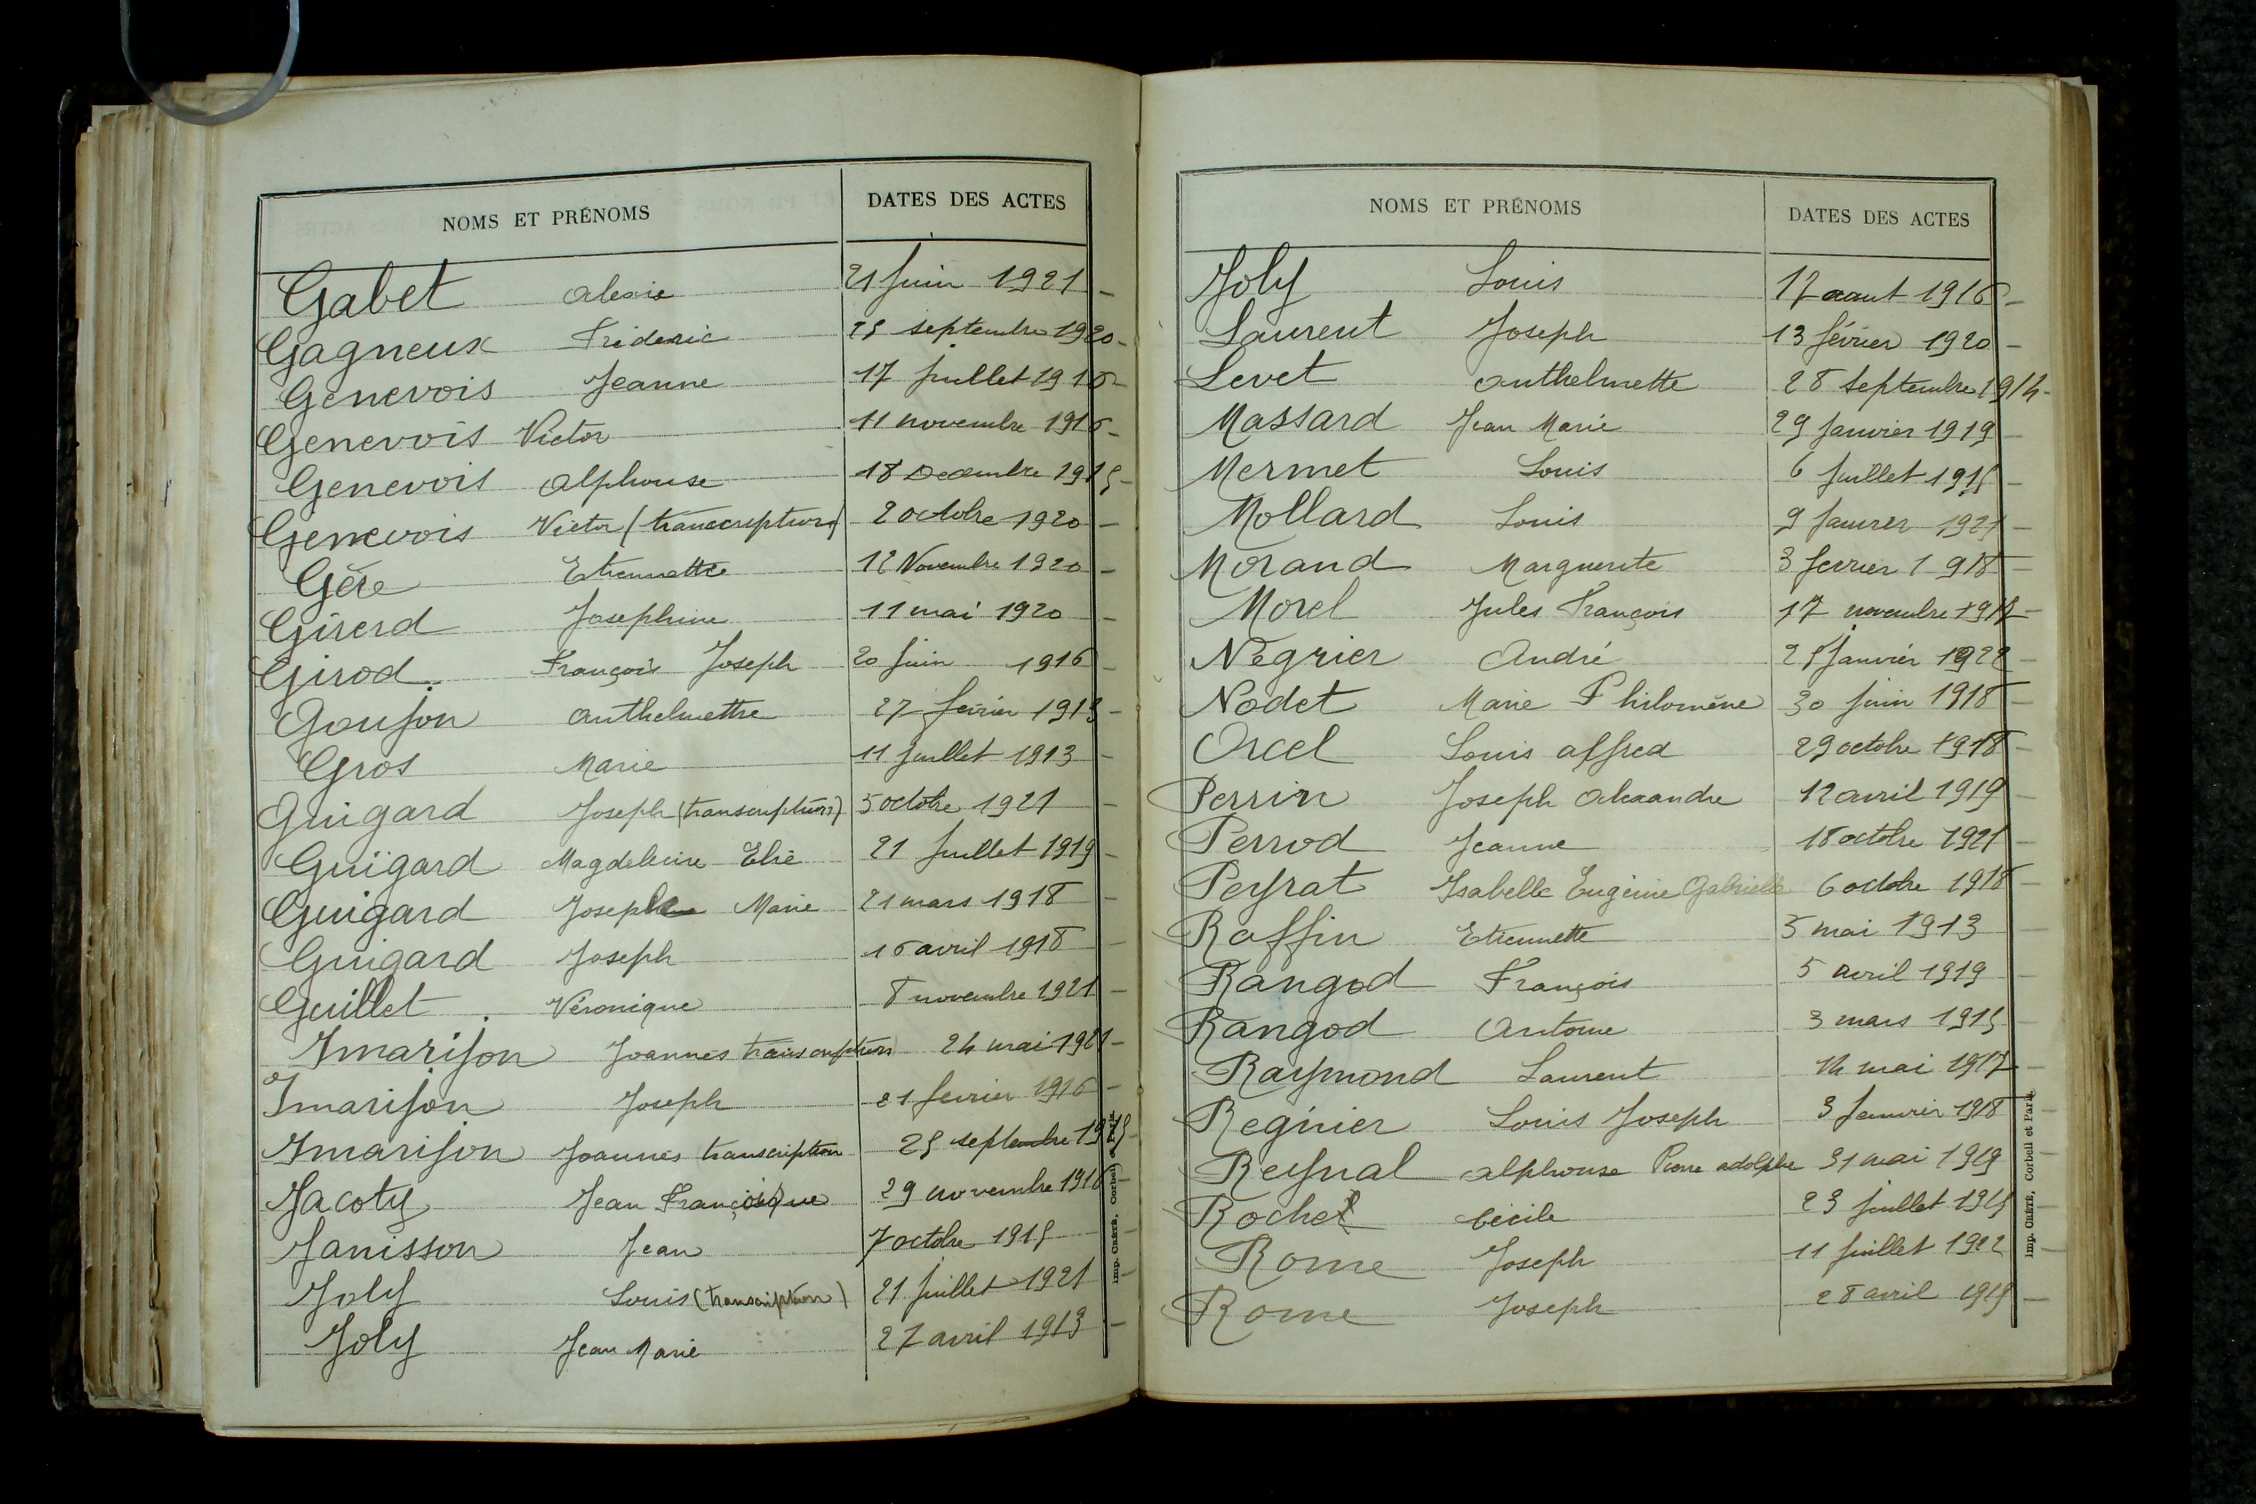 NOMS ET PRÉNOMS DATES DES ACTES
Gabet Alexis 21 Juin 1921
Gagneux Fréderic 25 septembre 1920
Genevois Jeanne 17 Juillet 1916
Genevois Victor 11 novembre 1916
Genevois Alphonse 18 Decembre 1915
Genevois Victor (transcription) 2 octobre 1920
Gère Etiennette 12 Novembre 1920
Girerd Josephine 11 mai 1920
Girod François Joseph 20 Juin 1916
Goujon Anthelmette 27 février 1913
Gros Marie 11 Juillet 1913
Guigard Joseph (transcription) 5 octobre 1921
Guigard Magdeleine Elie 21 Juillet 1919
Guigard Joseph Marie 21 mars 1918
Guigard Joseph 16 avril 1918
Guillet Véronique 8 novembre 1921
Imarijon Joannès transcription 24 mai 1921
Imarijon Joseph 21 fevrier 1916
Imarijon Joannès transcription 25 septembre
Jacoty Jean 29 novembre 1918
Janisson Jean 7 octobre 1915
Joly Louis (transcription) 21 Juillet 1921
Joly Jean Marie 27 avril 1913
Imp. Crété, Corbeil
NOMS ET PRÉNOMS DATES DES ACTES
Joly Louis 17 aout 1916
Laurent Joseph 13 février 1920
Levet Anthelmette 28 Septembre 1914
Massard Jean Marie 29 Janvier 1919
Mermet Louis 6 Juillet 1915
Mollard Louis 9 Janvier 1921
Morand Marguerite 3 fevrier 1918
Morel Jules François 17 novembre
Négrier André 25 Janvier 1922
Nodet Marie Philomène 30 Juin 1918
Orcel Louis Alfred 29 octobre 1918
Perrin Joseph Alexandre 12 avril 1919
Perrod Jeanne 18 octobre 1921
Peyrat Isabelle Eugénie Gabrielle 6 octobre 1918
Raffin Etiennette 5 mai 1913
Rangod François 5 avril 1919
Rangod Antoine 3 mars 1915
Raymond Laurent 14 mai 1917
Regnier Louis Joseph 3 Janvier 1918
Reynal Alphonse Pierre Adolphe 31 mai 1919
Rochet Cécile 23 Juillet 1915
Rome Joseph 11 Juillet 1922
Rome Joseph 28 avril 1915
Imp. Crété, Corbeil et Paris.